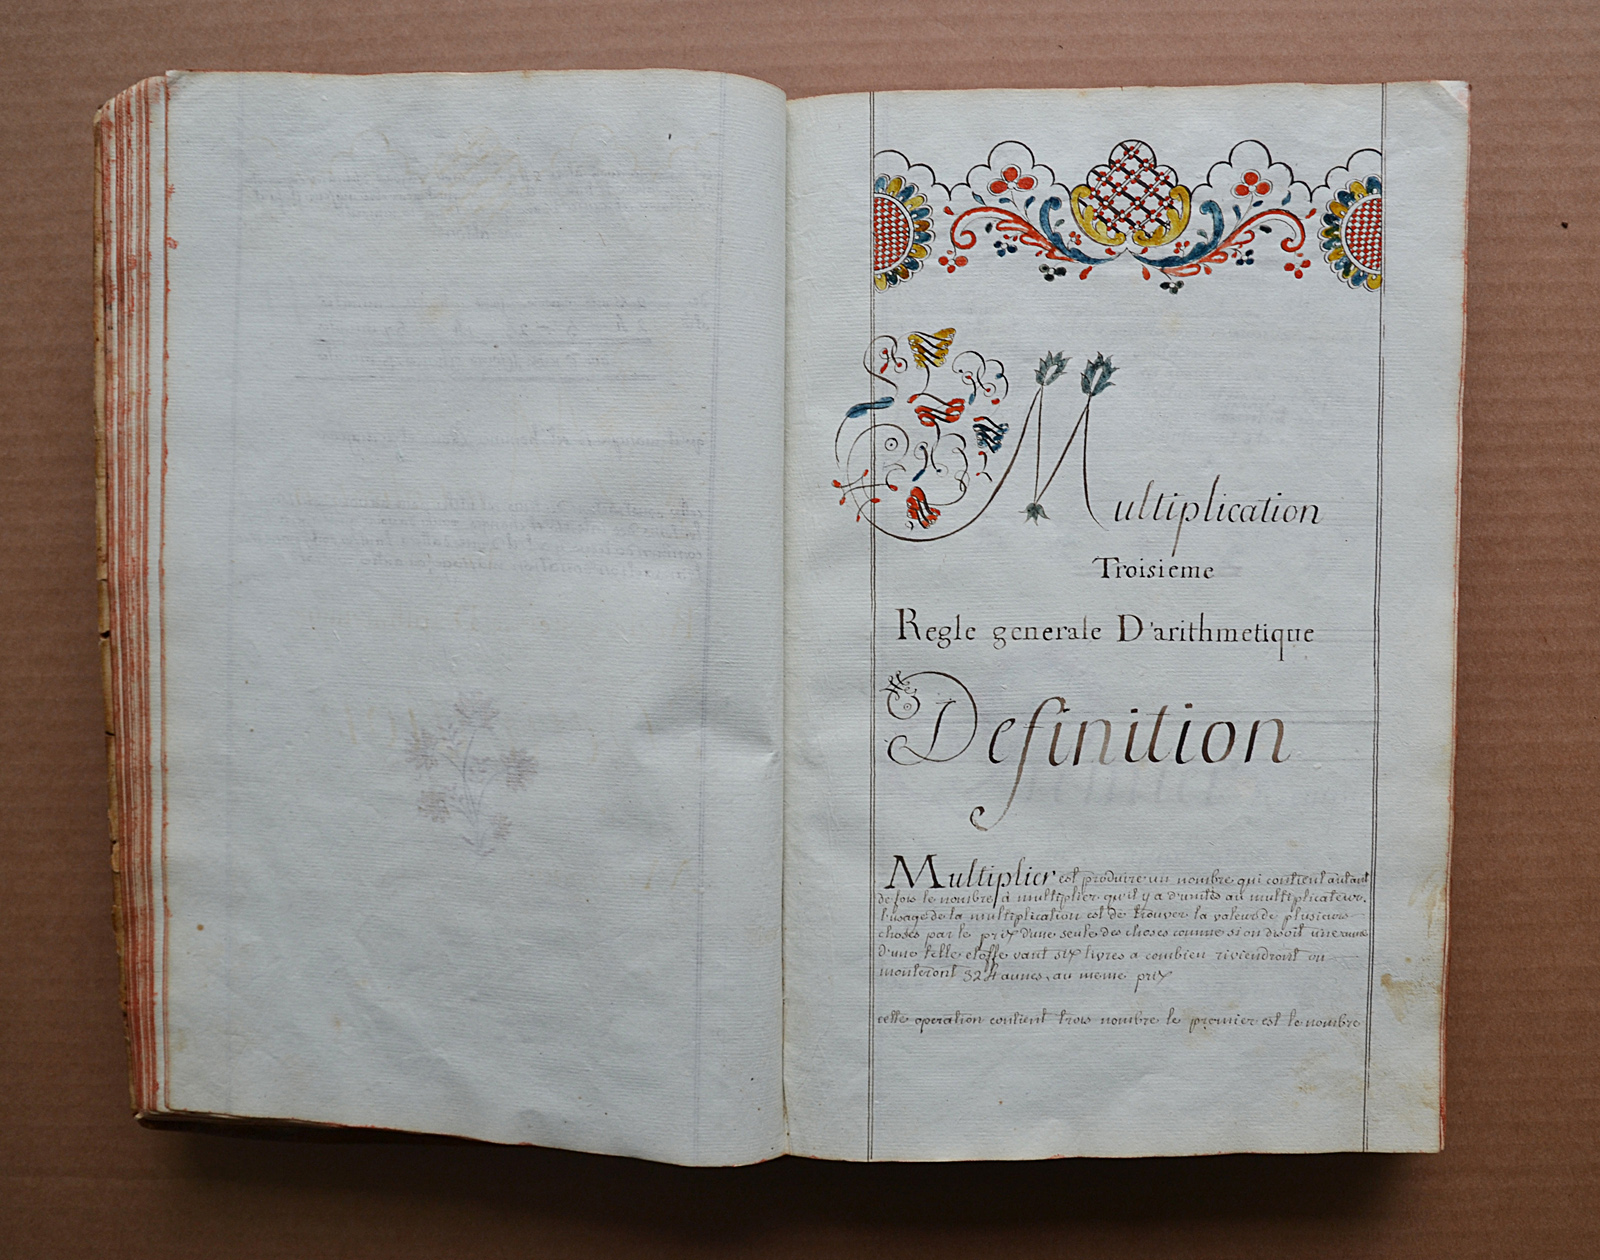 Multiplication
Troisieme
Regle generale D'arithmetique
Definition
Multiplier est produire un nombre qui contient autant
de fois le nombre a multiplier qu'il y a d'unites au multiplicateur.
l'usage de la multiplication est de trouver la valeur de plusieurs
choses par le prix d'une seule des choses comme si on disoit une aune
d'une telle etoffe vaut six livres a combien riviendront ou
monteront 324 aunes au meme prix
cette operation contient trois nombre le premier est le nombre